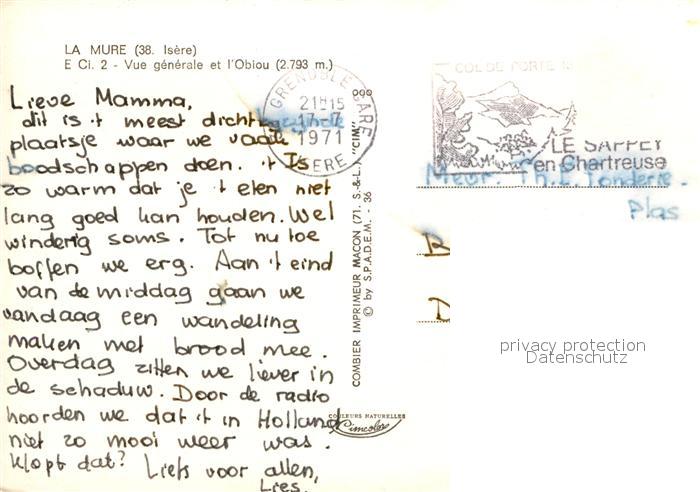 LA MURE (38. Isère)
E Ci. 2 - Vue générale et l'Obiou (2.793 m.)
Lieve Mamma,
dit is 't meest dichtbijzijnde
plaatsje waar we vaak
boodschappen doen. 't Is
zo warm dat je 't eten niet
lang goed kan houden. Wel
winderig soms. Tot nu toe
boffen we erg. Aan 't eind
van de middag gaan we
vandaag een wandeling
maken met brood mee.
Overdag zitten we liever in
de schaduw. Door de radio
hoorden we dat 't in Holland
niet zo mooi weer was.
Klopt dat? Liefs voor allen,
Lies.
GRENOBLE GARE
21H15
17-7
1971
ISERE
COMBIER IMPRIMEUR MACON (71. S.-&-L.) "CIM"
© by S.P.A.D.E.M. - 36
COULEURS NATURELLES
Cimcolor
COL DE PORTE
LE SAPPEY
en Chartreuse
Mevr. Th. E. Tonderie.
Plas
B
D
privacy protection
Datenschutz